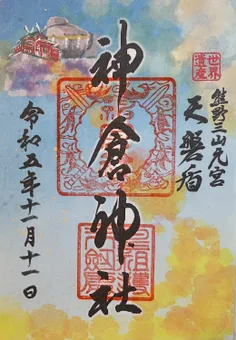 世界
遺産
熊野三山元宮
天磐盾
神倉神社
令和五年十一月十一日